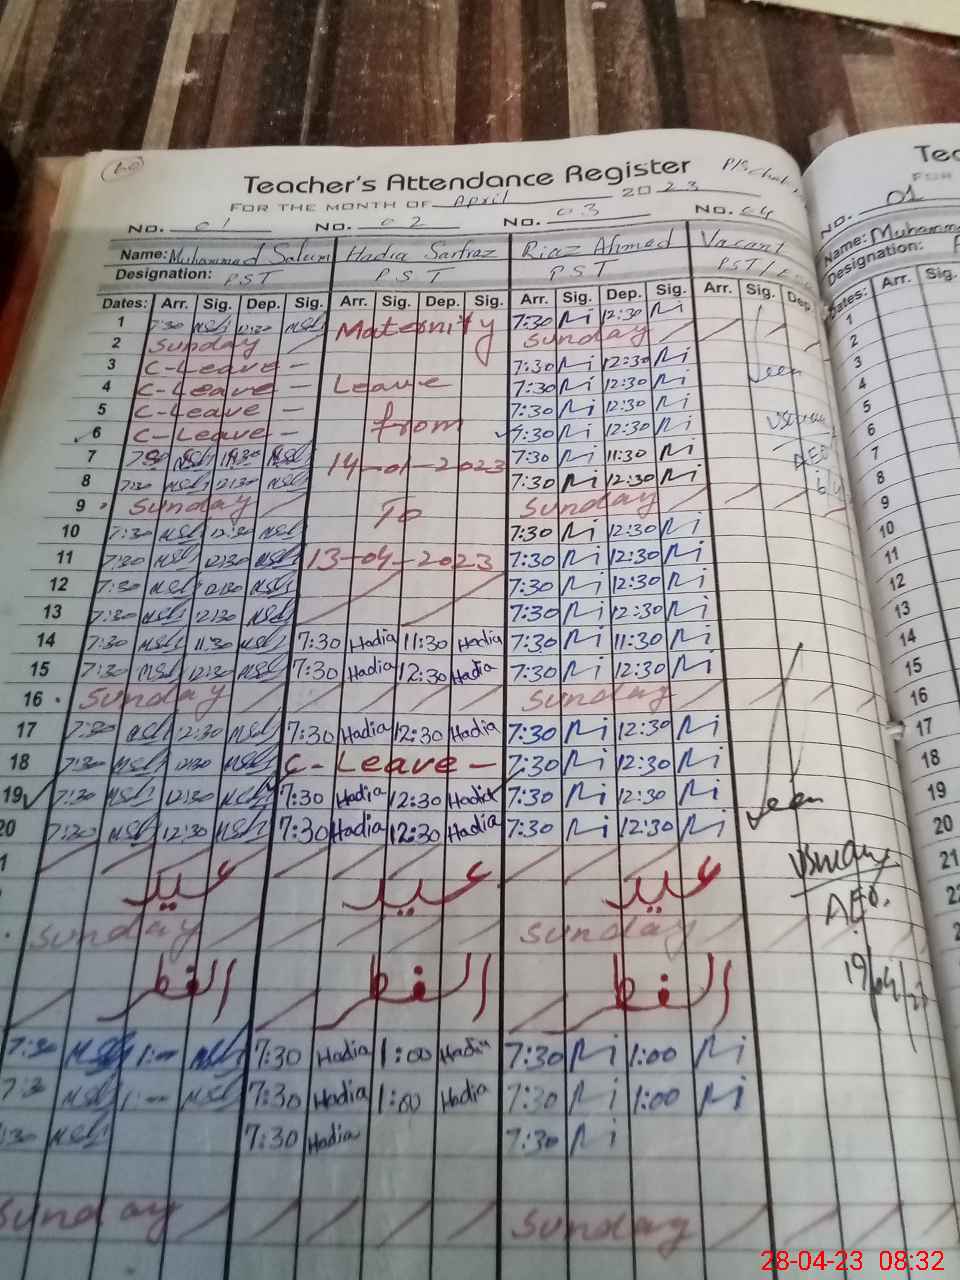 Teacher's Attendance Register
FOR THE MONTH OF April 2023
No. 01 No. 02 No. 03 No. 04
Name: Muhammad Salum Hadia Sarfraz Riaz Ahmed Vacant
Designation: PST PST PST PST/
Dates: Arr. Sig. Dep. Sig. Arr. Sig. Dep. Sig. Arr. Sig. Dep. Sig. Arr. Sig. Dep.
1 7:30 12:30 Maternity 7:30 Ri 12:30 Ri
2 Sunday Sunday
3 C-Leave - 7:30 Ri 12:30 Ri
4 C-Leave - Leave 7:30 Ri 12:30 Ri Seen
5 C-Leave - 7:30 Ri 12:30 Ri
6 C-Leave - from 7:30 Ri 12:30 Ri
7 7:30 11:30 14-01-2023 7:30 Ri 11:30 Ri AEO
8 7:30 12:30 7:30 Ri 12:30 Ri
9 Sunday To Sunday
10 7:30 12:30 7:30 Ri 12:30 Ri
11 7:30 12:30 13-04-2023 7:30 Ri 12:30 Ri
12 7:30 12:30 7:30 Ri 12:30 Ri
13 7:30 12:30 7:30 Ri 12:30 Ri
14 7:30 11:30 7:30 Hadia 11:30 Hadia 7:30 Ri 11:30 Ri
15 7:30 12:30 7:30 Hadia 12:30 Hadia 7:30 Ri 12:30 Ri
16 Sunday Sunday
17 7:30 12:30 7:30 Hadia 12:30 Hadia 7:30 Ri 12:30 Ri
18 7:30 12:30 C-Leave - 7:30 Ri 12:30 Ri
19 7:30 12:30 7:30 Hadia 12:30 Hadia 7:30 Ri 12:30 Ri Seen
20 7:30 12:30 7:30 Hadia 12:30 Hadia 7:30 Ri 12:30 Ri
1
عید عید عید
AEO.
Sunday Sunday
الفطر الفطر الفطر
19/04/23
7:30 1:00 7:30 Hadia 1:00 Hadia 7:30 Ri 1:00 Ri
7:3 1:00 7:30 Hadia 1:00 Hadia 7:30 Ri 1:00 Ri
:30 7:30 Hadia 7:30 Ri
Sunday Sunday
Tea
FOR
No. 01
Name: Muhamma
Designation:
Dates: Arr. Sig.
1
2
3
4
5
6
7
8
9
10
11
12
13
14
15
16
17
18
19
20
21
22
2
28-04-23 08:32